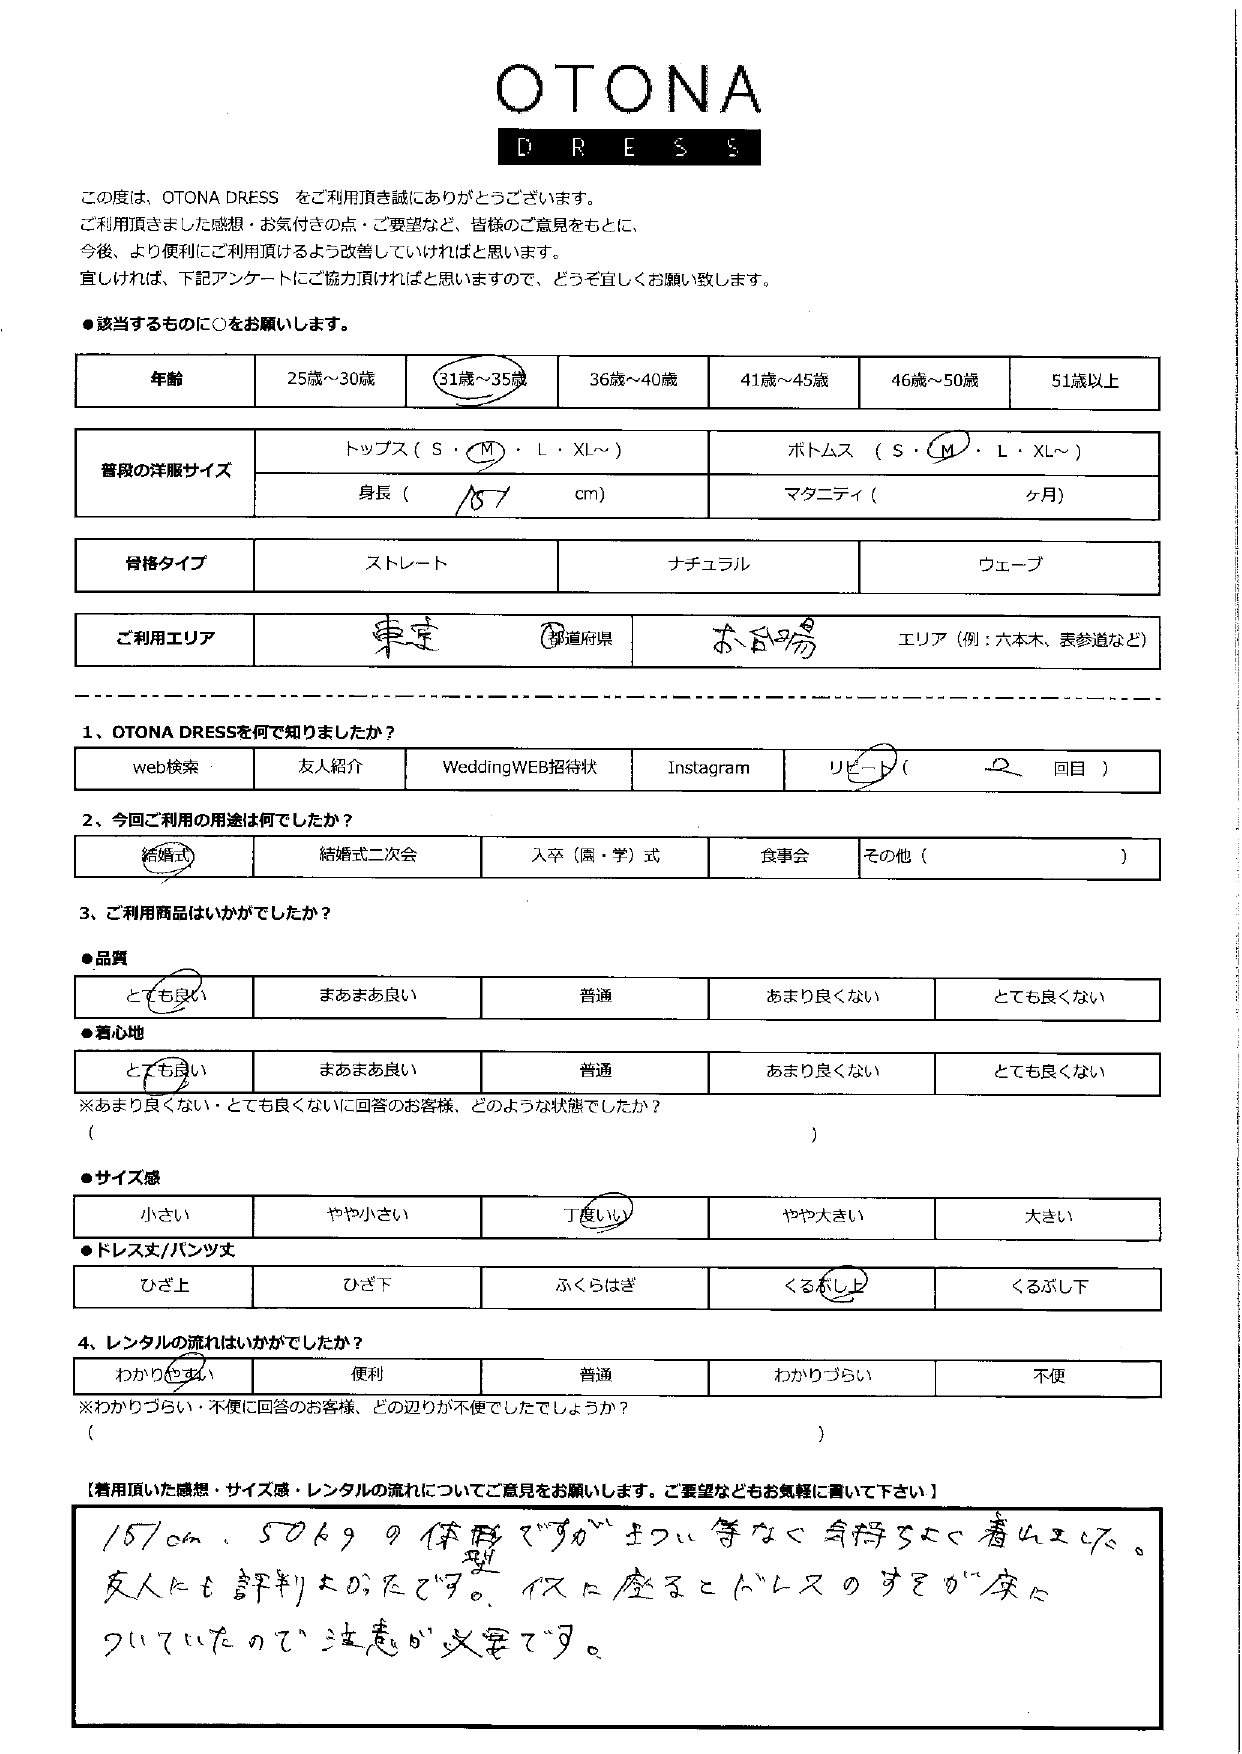 OTONA
DRESS
この度は、OTONA DRESS　をご利用頂き誠にありがとうございます。
ご利用頂きました感想・お気付きの点・ご要望など、皆様のご意見をもとに、
今後、より便利にご利用頂けるよう改善していければと思います。
宜しければ、下記アンケートにご協力頂ければと思いますので、どうぞ宜しくお願い致します。
●該当するものに○をお願いします。
年齢 25歳～30歳 31歳～35歳 36歳～40歳 41歳～45歳 46歳～50歳 51歳以上
普段の洋服サイズ トップス ( S ・ M ・ L ・ XL～ ) ボトムス ( S ・ M ・ L ・ XL～ )
身長 ( 151 cm) マタニティ ( ヶ月)
骨格タイプ ストレート ナチュラル ウェーブ
ご利用エリア 東京 都道府県 お台場 エリア（例：六本木、表参道など）
1、OTONA DRESSを何で知りましたか？
web検索 友人紹介 WeddingWEB招待状 Instagram リピート ( 2 回目 )
2、今回ご利用の用途は何でしたか？
結婚式 結婚式二次会 入卒（園・学）式 食事会 その他 ( )
3、ご利用商品はいかがでしたか？
●品質
とても良い まあまあ良い 普通 あまり良くない とても良くない
●着心地
とても良い まあまあ良い 普通 あまり良くない とても良くない
※あまり良くない・とても良くないに回答のお客様、どのような状態でしたか？
( )
●サイズ感
小さい やや小さい 丁度いい やや大きい 大きい
●ドレス丈/パンツ丈
ひざ上 ひざ下 ふくらはぎ くるぶし上 くるぶし下
4、レンタルの流れはいかがでしたか？
わかりやすい 便利 普通 わかりづらい 不便
※わかりづらい・不便に回答のお客様、どの辺りが不便でしたでしょうか？
( )
【着用頂いた感想・サイズ感・レンタルの流れについてご意見をお願いします。ご要望などもお気軽に書いて下さい】
151cm、50kgの体型ですがきつい等なく気持ちよく着れました。
友人にも評判よかったです。イスに座るとドレスのすそが床に
ついていたので注意が必要です。